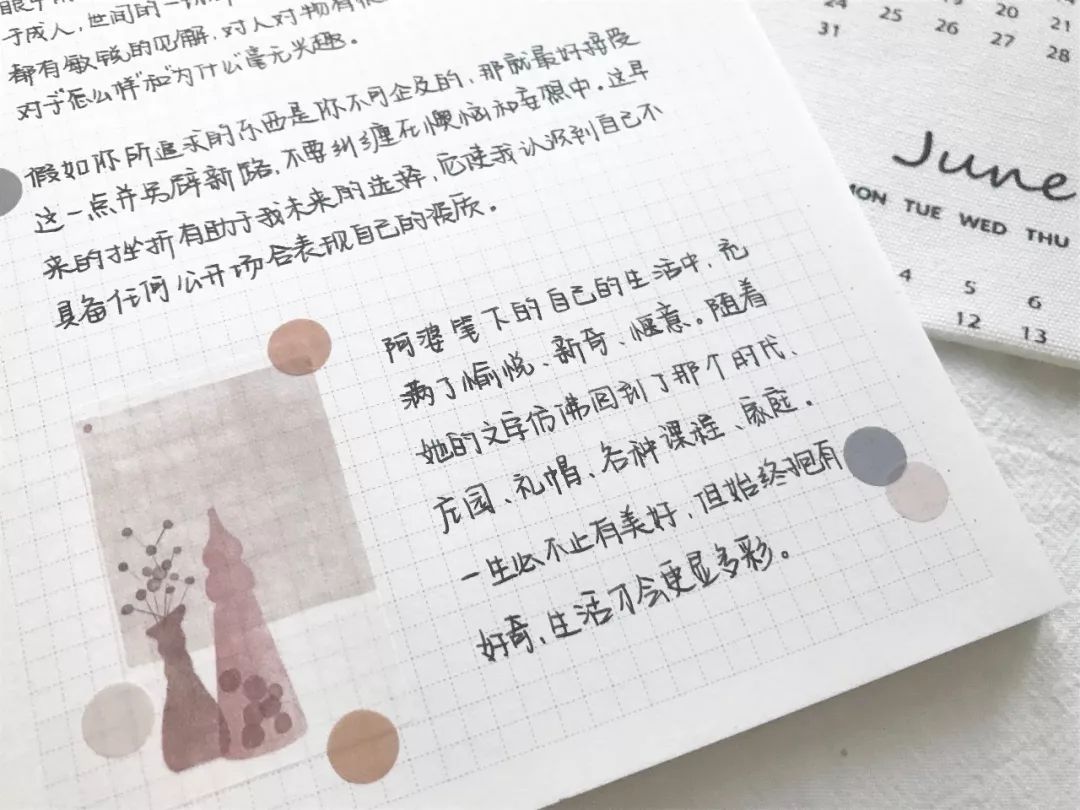 于成人,世间的一切
都有敏锐的见解,对人对物有很
对于"怎么样"和"为什么"毫无兴趣。
假如你所追求的东西是你不可企及的,那就最好接受
这一点并另辟新路,不要纠缠在懊恼和妄想中。这早
来的挫折有助于我未来的选择,它使我认识到自己不
具备任何公开场合表现自己的资质。
阿婆笔下的自己的生活中,充
满了愉悦、新奇、惬意。随着
她的文字仿佛回到了那个时代、
庄园、礼帽、各种课程、家庭.
一生必不止有美好,但始终抱有
好奇、生活才会更显多彩。
24 25 26 27 28
20 21
31
June
MON TUE WED THU
4 5 6
12 13